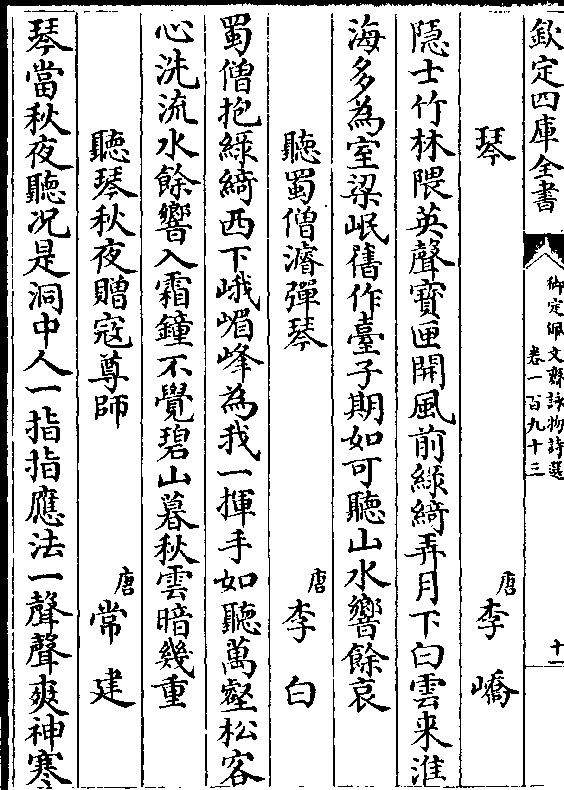 欽定四庫全書
御定佩文齋詠物詩選
卷一百九十三
十一
琴 唐 李嶠
隱士竹林隈英聲寳匣開風前緑綺弄月下白雲來淮
海多為室梁岷舊作臺子期如可聽山水響餘哀
聽蜀僧濬彈琴 唐 李白
蜀僧抱緑綺西下峨嵋峰為我一揮手如聽萬壑松客
心洗流水餘響入霜鐘不覺碧山暮秋雲暗幾重
聽琴秋夜贈寇尊師 唐 常建
琴當秋夜聽况是洞中人一指指應法一聲聲爽神寒